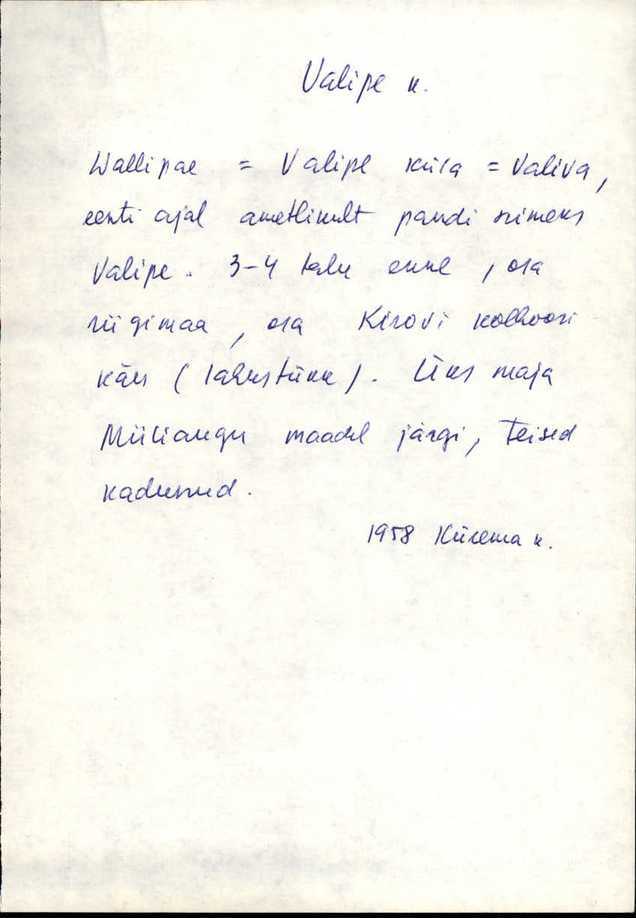 Valipe k.
Wallipae = Valipe küla = Valiva,
eesti ajal ametlikult pandi nimeks
Valipe. 3-4 talu enne, osa
riigimaa, osa Kirovi kolhoosi
käes (lahustükk). Üks maja
maadel järgi, teised
kadunud.
1958 Küsema k.